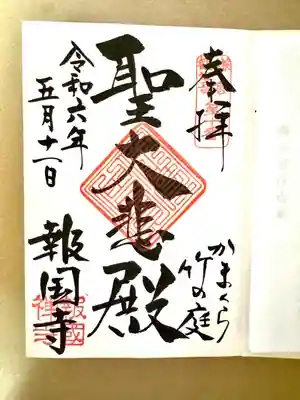 奉拝
かまくら
竹の庭
聖大悲殿
令和六年
五月十一日
報国寺